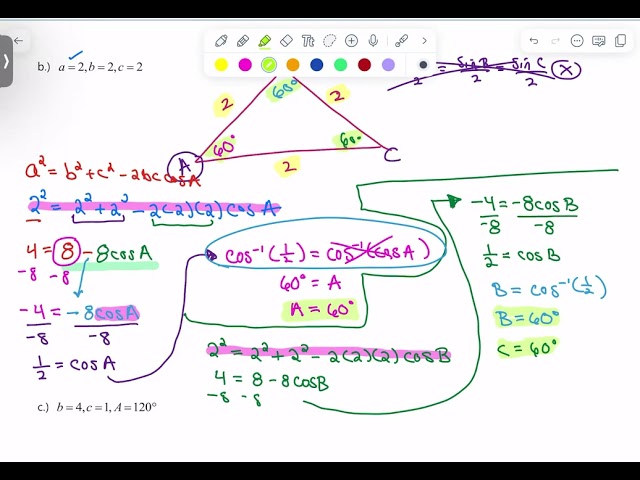 b.) a = 2, b = 2, c = 2
2 = sin B / 2 = sin C / 2 x
60°
2 2
A 60° 60° C
2
a² = b² + c² - 2bc cosA
2² = 2² + 2² - 2(2)(2) cosA
4 = 8 - 8cosA
-8 -8
-4 = -8cosA
-8 -8
1/2 = cosA
cos⁻¹(1/2) = cos⁻¹(cosA)
60° = A
A = 60°
2² = 2² + 2² - 2(2)(2) cosB
4 = 8 - 8cosB
-8 -8
-4 = -8cosB
-8 -8
1/2 = cosB
B = cos⁻¹(1/2)
B = 60°
C = 60°
c.) b = 4, c = 1, A = 120°